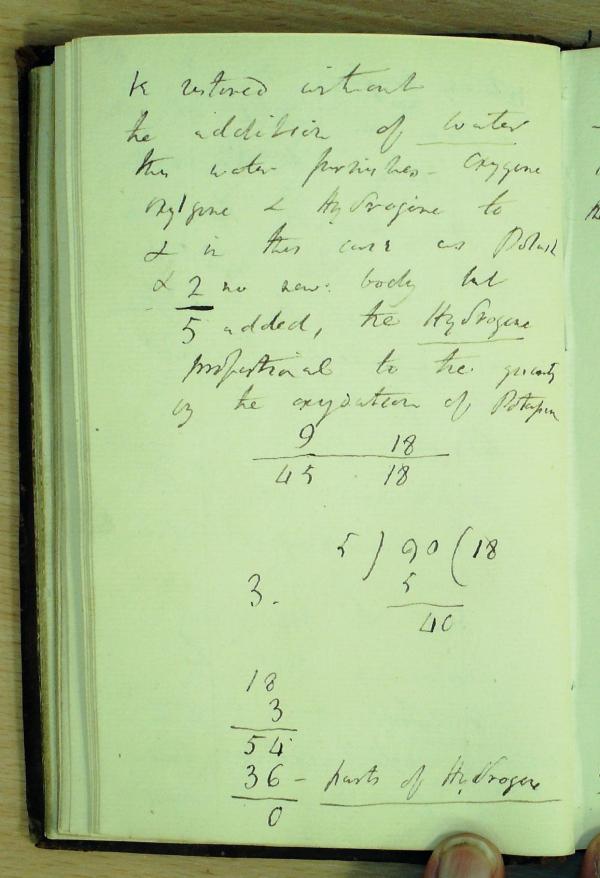 be restored without
the addition of water
this water furnishes - oxygene
oxygene & Hydrogene to
& in this case as Potash
& 2 no new: body but
5 added, the Hydrogene
proportional to the quantity
by the oxydation of Potassm
9 18
45 18
5 ) 90 ( 18
3. 5
40
18
3
54
36 - parts of Hydrogene
0